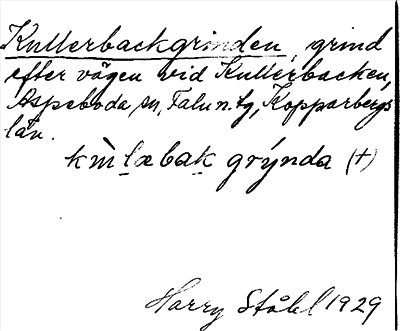 Kullerbackgrinden, grind
efter vägen vid Kullerbacken,
Aspeboda sn, Falun. tg, Kopparbergs
län.
kùlæbak grýnda (+)
Harry Ståhl 1929